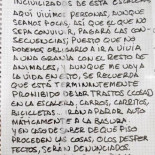 INCIVILIZADOS DE ESTA ESCALERA
AQUÍ VIVIMOS PERSONAS, AUNQUE
SEAMOS POCAS, ASÍ QUE, EL QUE NO
SEPA CONVIVIR, PAGARÁ LAS CON-
SECUENCIAS; PUESTO QUE NO
PODEMOS OBLIGARLO A IR A VIVIR
A UNA GRANJA CON EL RESTO DE
ANIMALES, Y AUNQUE ME VAYA
LA VIDA EN ESTO, SE RECUERDA
QUE ESTÁ TERMINANTEMENTE
PROHIBIDO DEJAR TRASTOS COSAS
EN LA ESCALERA, CARROS, CARRITOS,
BICICLETAS. IRÁN A PARAR AUTO
MÁTICAMENTE A LA BASURA
Y EN CASO DE SABER DE QUÉ PISO
PROCEDEN LAS COSAS, O LOS DESPER
FECTOS, SERÁN DENUNCIADOS.